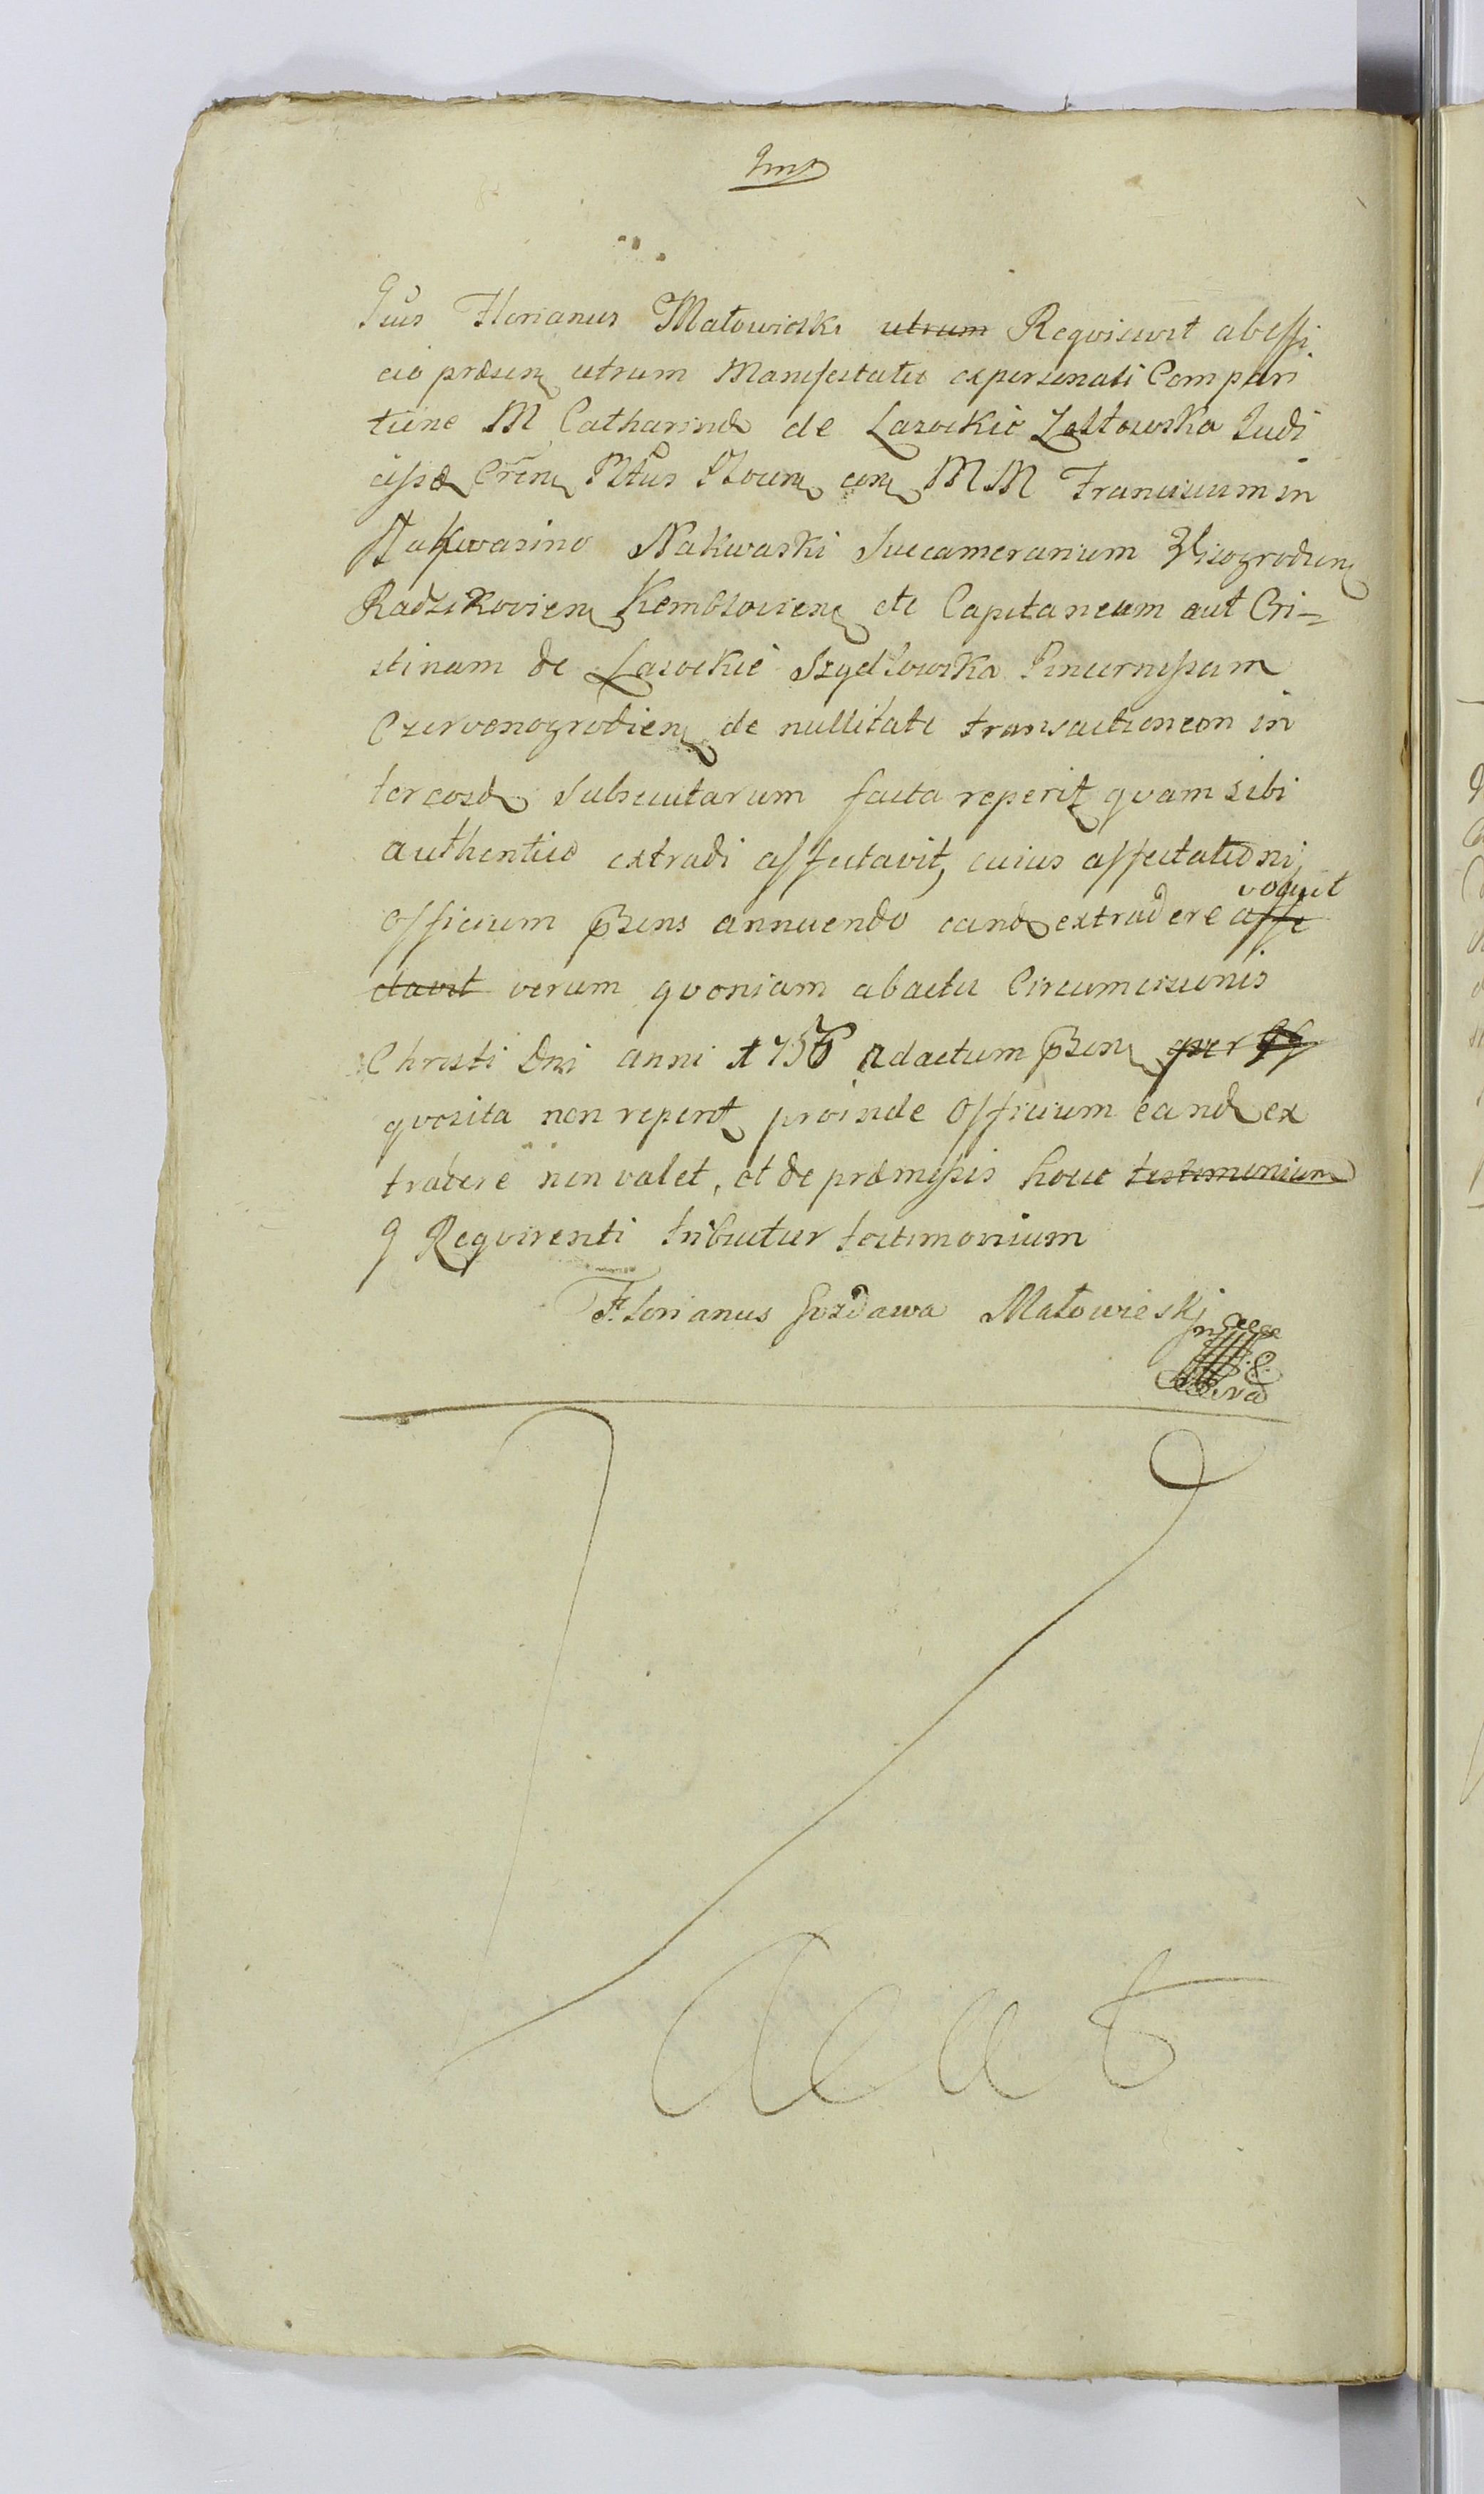 Gsus Florianus Małowieski utrum Reqvisivit ab offi
cio præsenȩ utrum Manifestatio ex personali Compari
tione M Catharinæ de Lasockie Zołtowska Judi
cissæ Płocenȩ conȩ MM Franciscum in
Nakwasino Nakwaski Succamerarium Wisogrodienȩ
Radzikovienȩ Kemblovienȩ etc Capitaneum aut Cri=
stinam de Lasockie Szydłowska Pincernissam
Czervonogrodienȩ de nullitate transactionem in
ter eosdȩ subsecutarum facta reperitȩ qvam sibi
authentice extradi affectavit, cuius affectationi
voluit
officium prȩsens annuendo eandȩ extradere affe
ctavit verum qvoniam ab actu Circumcisionis
Christi Dni anni 1756 ad actum prȩsenȩ per
qvæsita non reperitȩ proinde Officium eandȩ ex
tradere non valet, et de præmissis hocce testimonium
G Reqvirenti tribuitur testimonium
Florianus Gozdawa Małowieskj